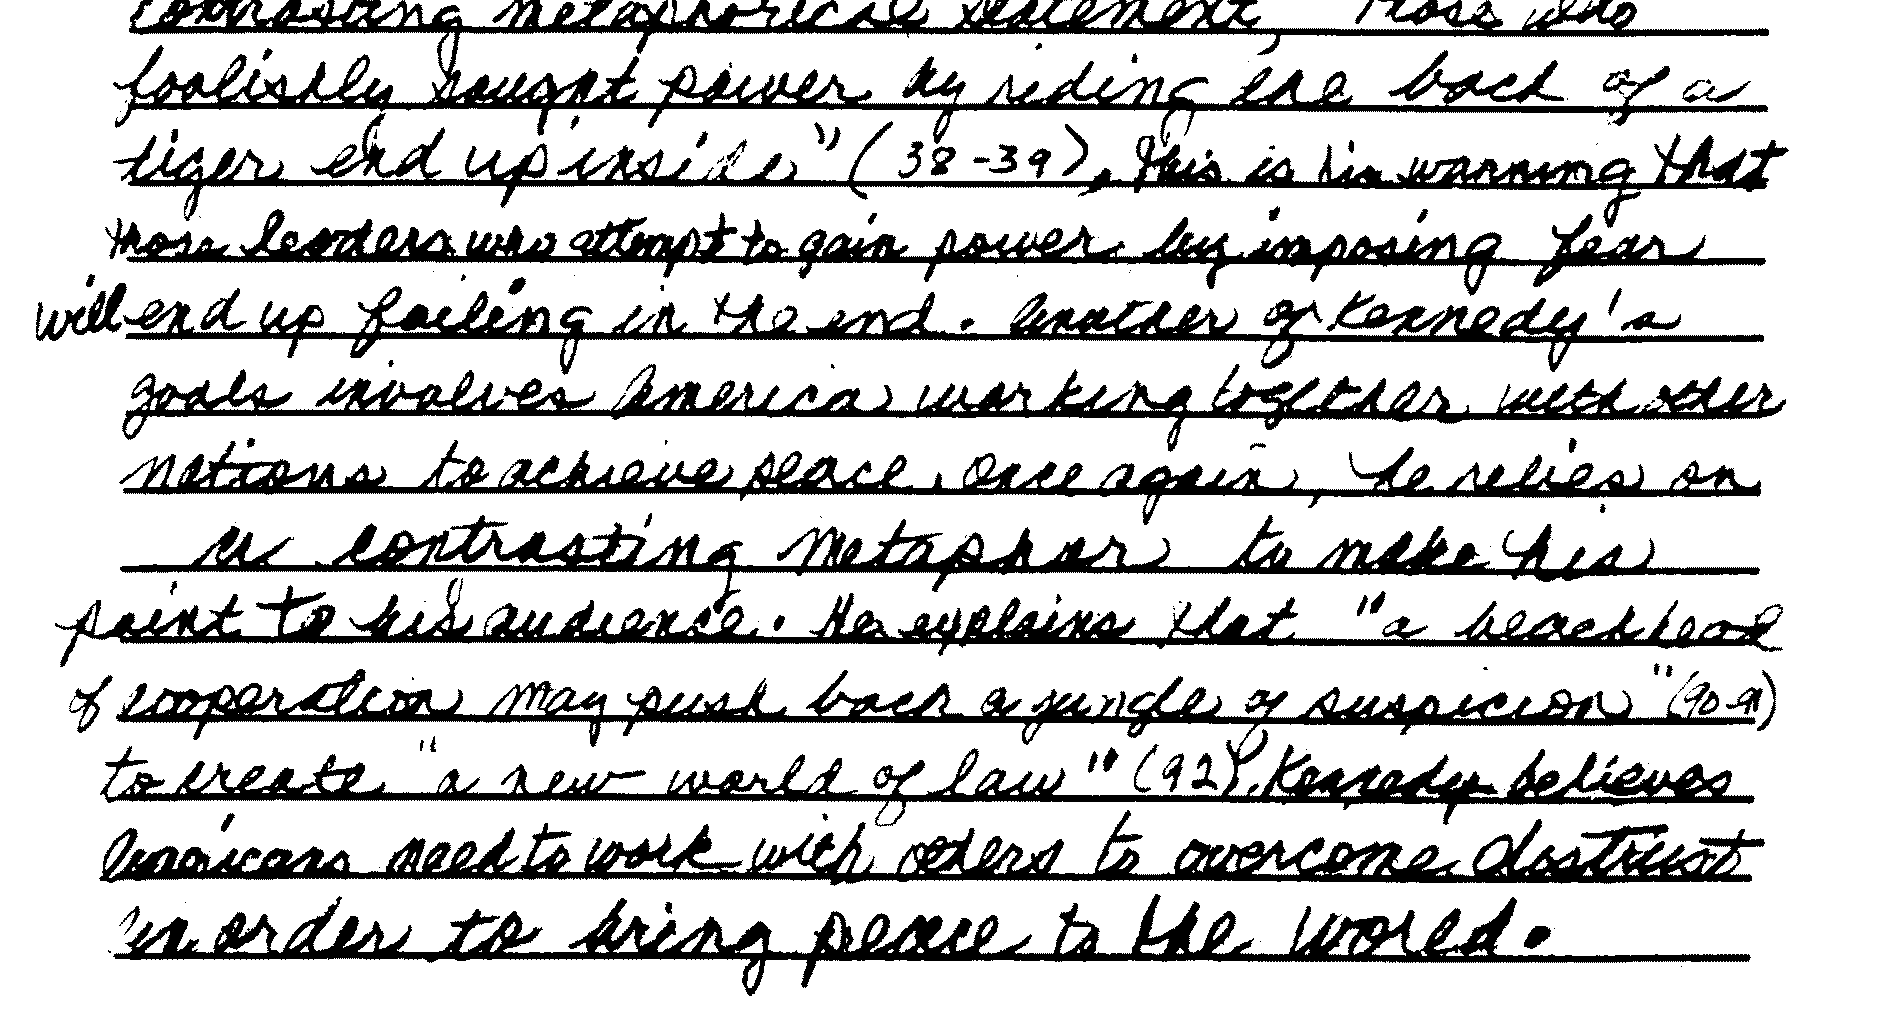 contrasting metaphorical statement, "those who
foolishly sought power by riding the back of a
tiger end up inside" (38-39). This is his warning that
those leaders who attempt to gain power by imposing fear
will end up failing in the end. Another of Kennedy's
goals involves America working together with other
nations to achieve peace. Once again, he relies on
a contrasting metaphor to make his
point to his audience. He explains that "a beachhead
of cooperation may push back a jungle of suspicion" (90-91)
to create "a new world of law" (92). Kennedy believes
Americans need to work with others to overcome distrust
in order to bring peace to the world.